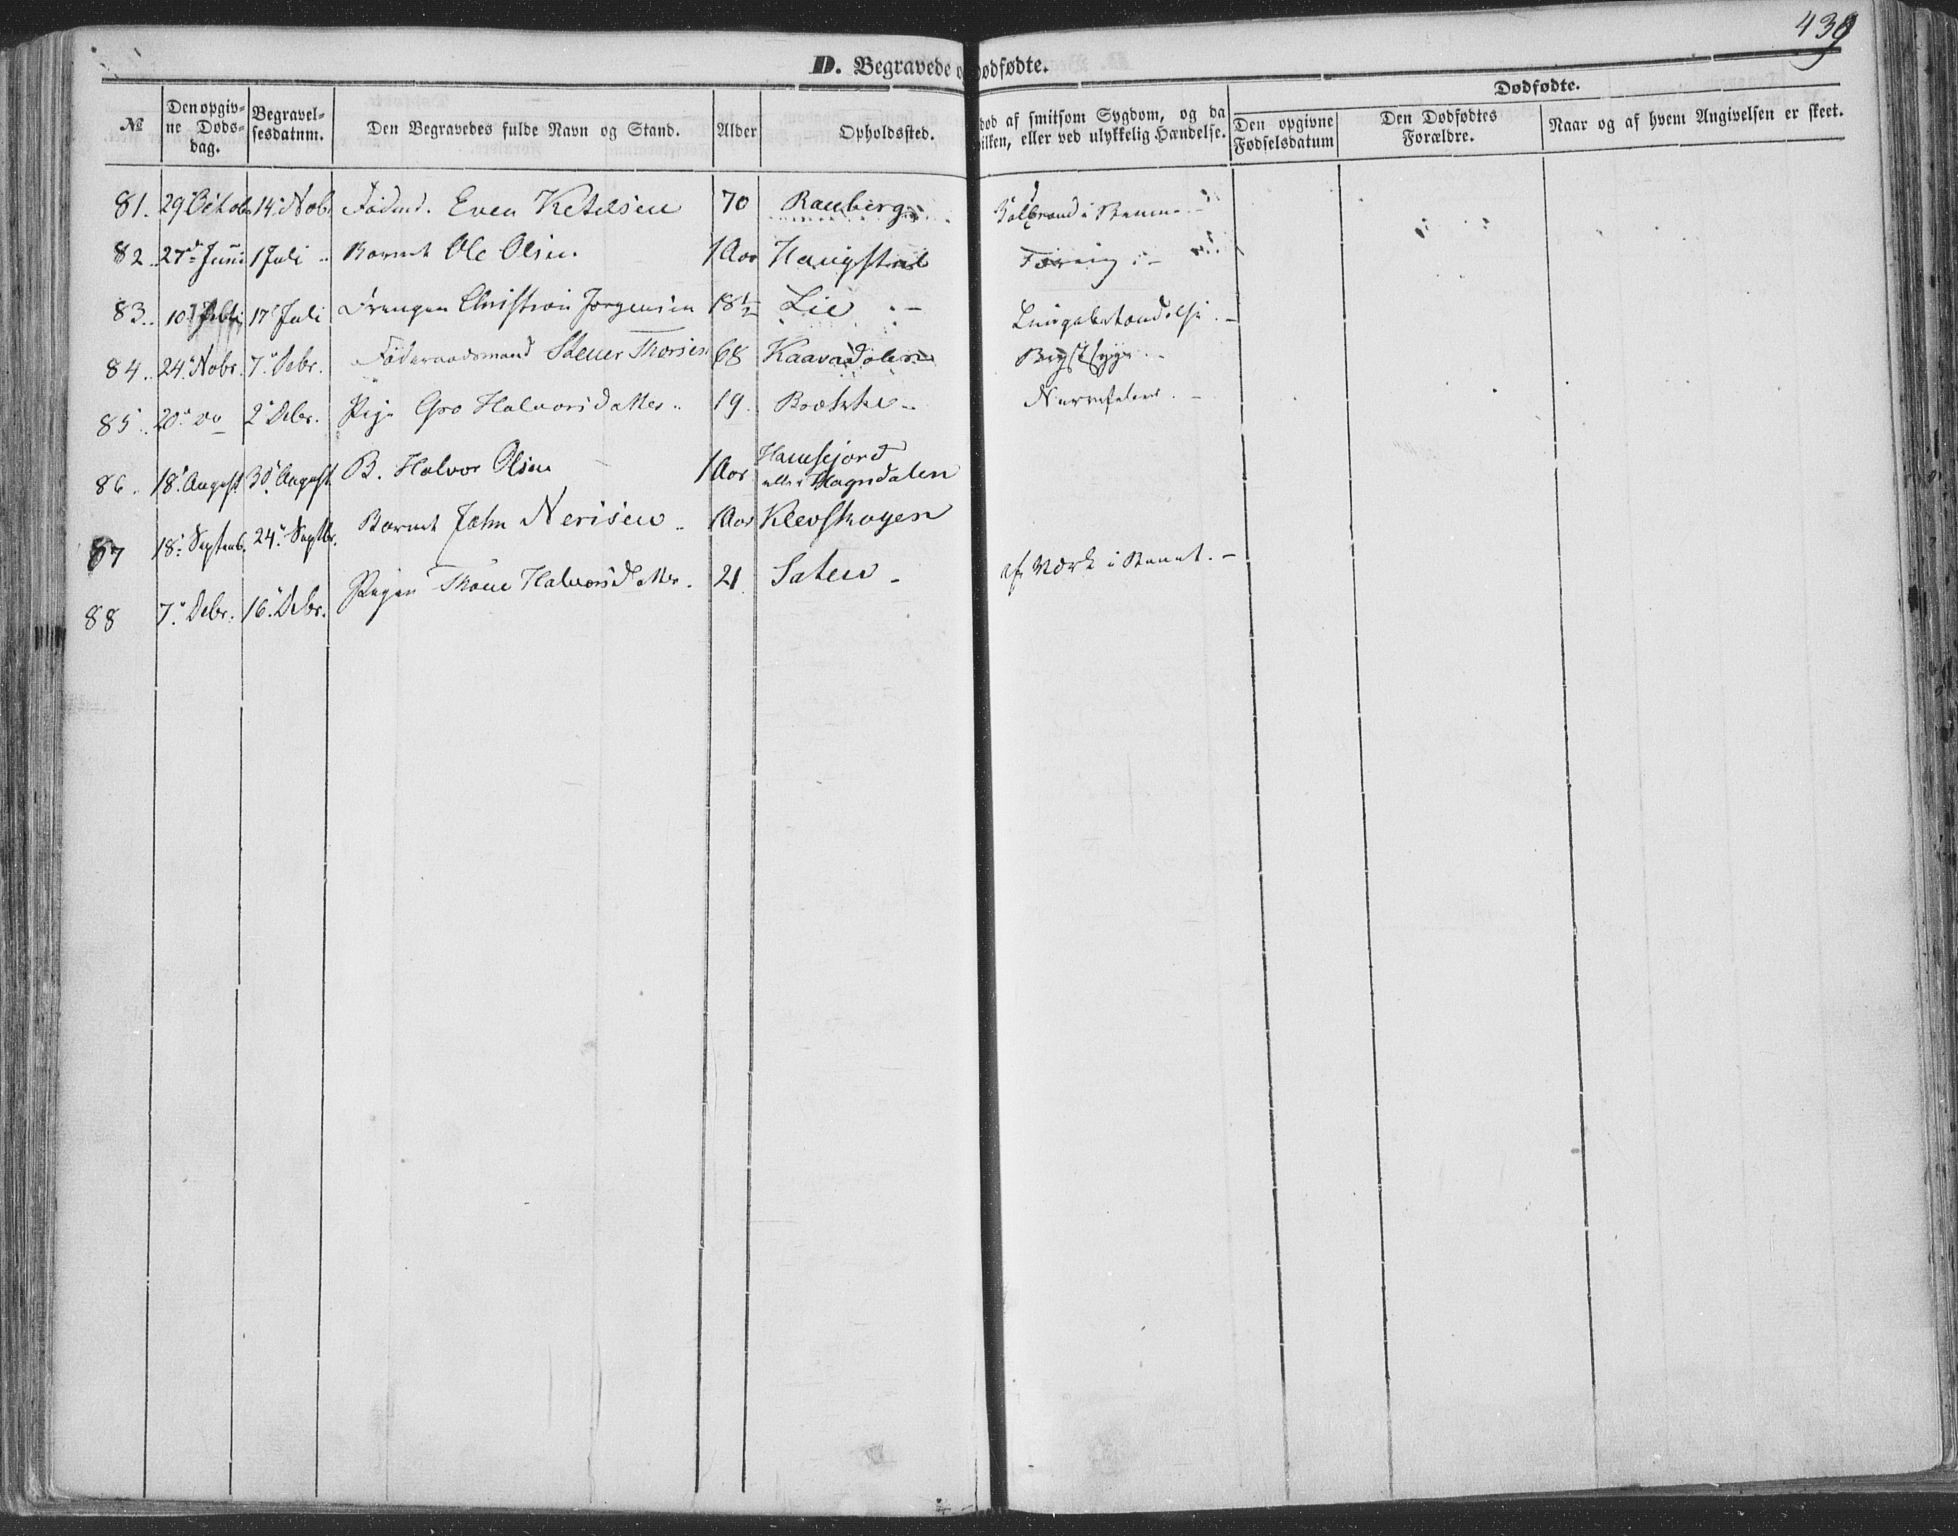 439
D. Begravede o Dødfødte.
№
Den opgiv-
ne Døds-
dag.
Begravel-
sesdatum.
Den Begravedes fulde Navn og Stand.
Alder
Opholdssted.
død af smitsom Sygdom, og da
ilken, eller ved ulykkelig Hændelse.
Dødfødte.
Den opgivne
Fødselsdatum
Den Dødfødtes
Forældre.
Naar og af hvem Angivelsen er skeet.
81. 29 Octob 14 Nob. Födmd. Even Ketelsen 70 Rauberg Kolbrand i Benene
82. 27 Juni 1 Juli Barnet Ole Olsen. 1 Aar Haugstul
83. 10 Juli 17 Juli Drengen Christian Jörgensen 18½ Lie Lungebetændelse
84. 24 Nobr. 7 Debr. Föderaadsmand Stener Thorsen 68 Kaavadalen Brystsyge
85. 20 do 2 Debr. Pige Gro Halvorsdatter 19. Brække Nervefeber
86. 18 August 30 August B. Halvor Olsen 1 Aar Hamsejord
eller Hagndalen
87 18 Septemb. 24 Septbr. Barnet John Nerisen 1 Aar Klevskogen
88 7 Debr. 16 Debr. Pigen Thone Halvorsdatter 21 Saten af Værk i Benet.